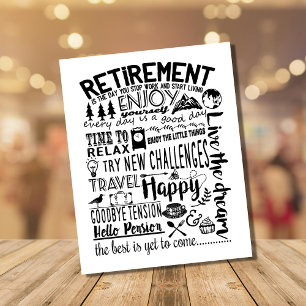 RETIREMENT
IS THE DAY YOU STOP WORK AND START LIVING
ENJOY
yourself
every day is a good day
TIME TO
RELAX
ENJOY THE LITTLE THINGS
Live the dream
TRY NEW CHALLENGES
TRAVEL
Happy
GOODBYE TENSION
Hello Pension
&
the best is yet to come..............